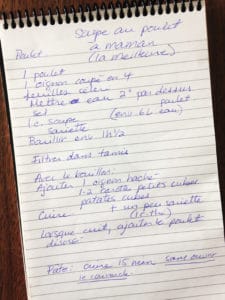 Soupe au poulet
à maman
(la meilleure)
Poulet
1 poulet
1 oignon coupé en 4
feuilles céleri
Mettre eau 2" par dessus
sel poulet
1 c. soupe (env 6 L eau)
sariette
Bouillir env 1h 1/2
Filtrer dans tamis
Avec le bouillon:
Ajouter 1 oignon haché
1-2 carotte petits cubes
patates cubes
Cuire + un peu sariette
(1c. thé)
Lorsque cuit, ajouter le poulet
désossé
Pâte: cuire 15 min sans ouvrir
le couvercle